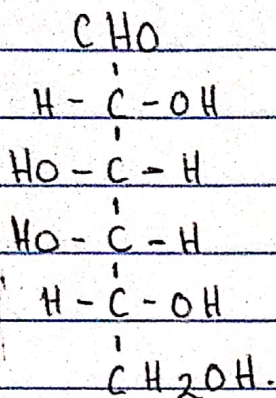 CHO
H - C - OH
HO - C - H
HO - C - H
H - C - OH
CH2OH.